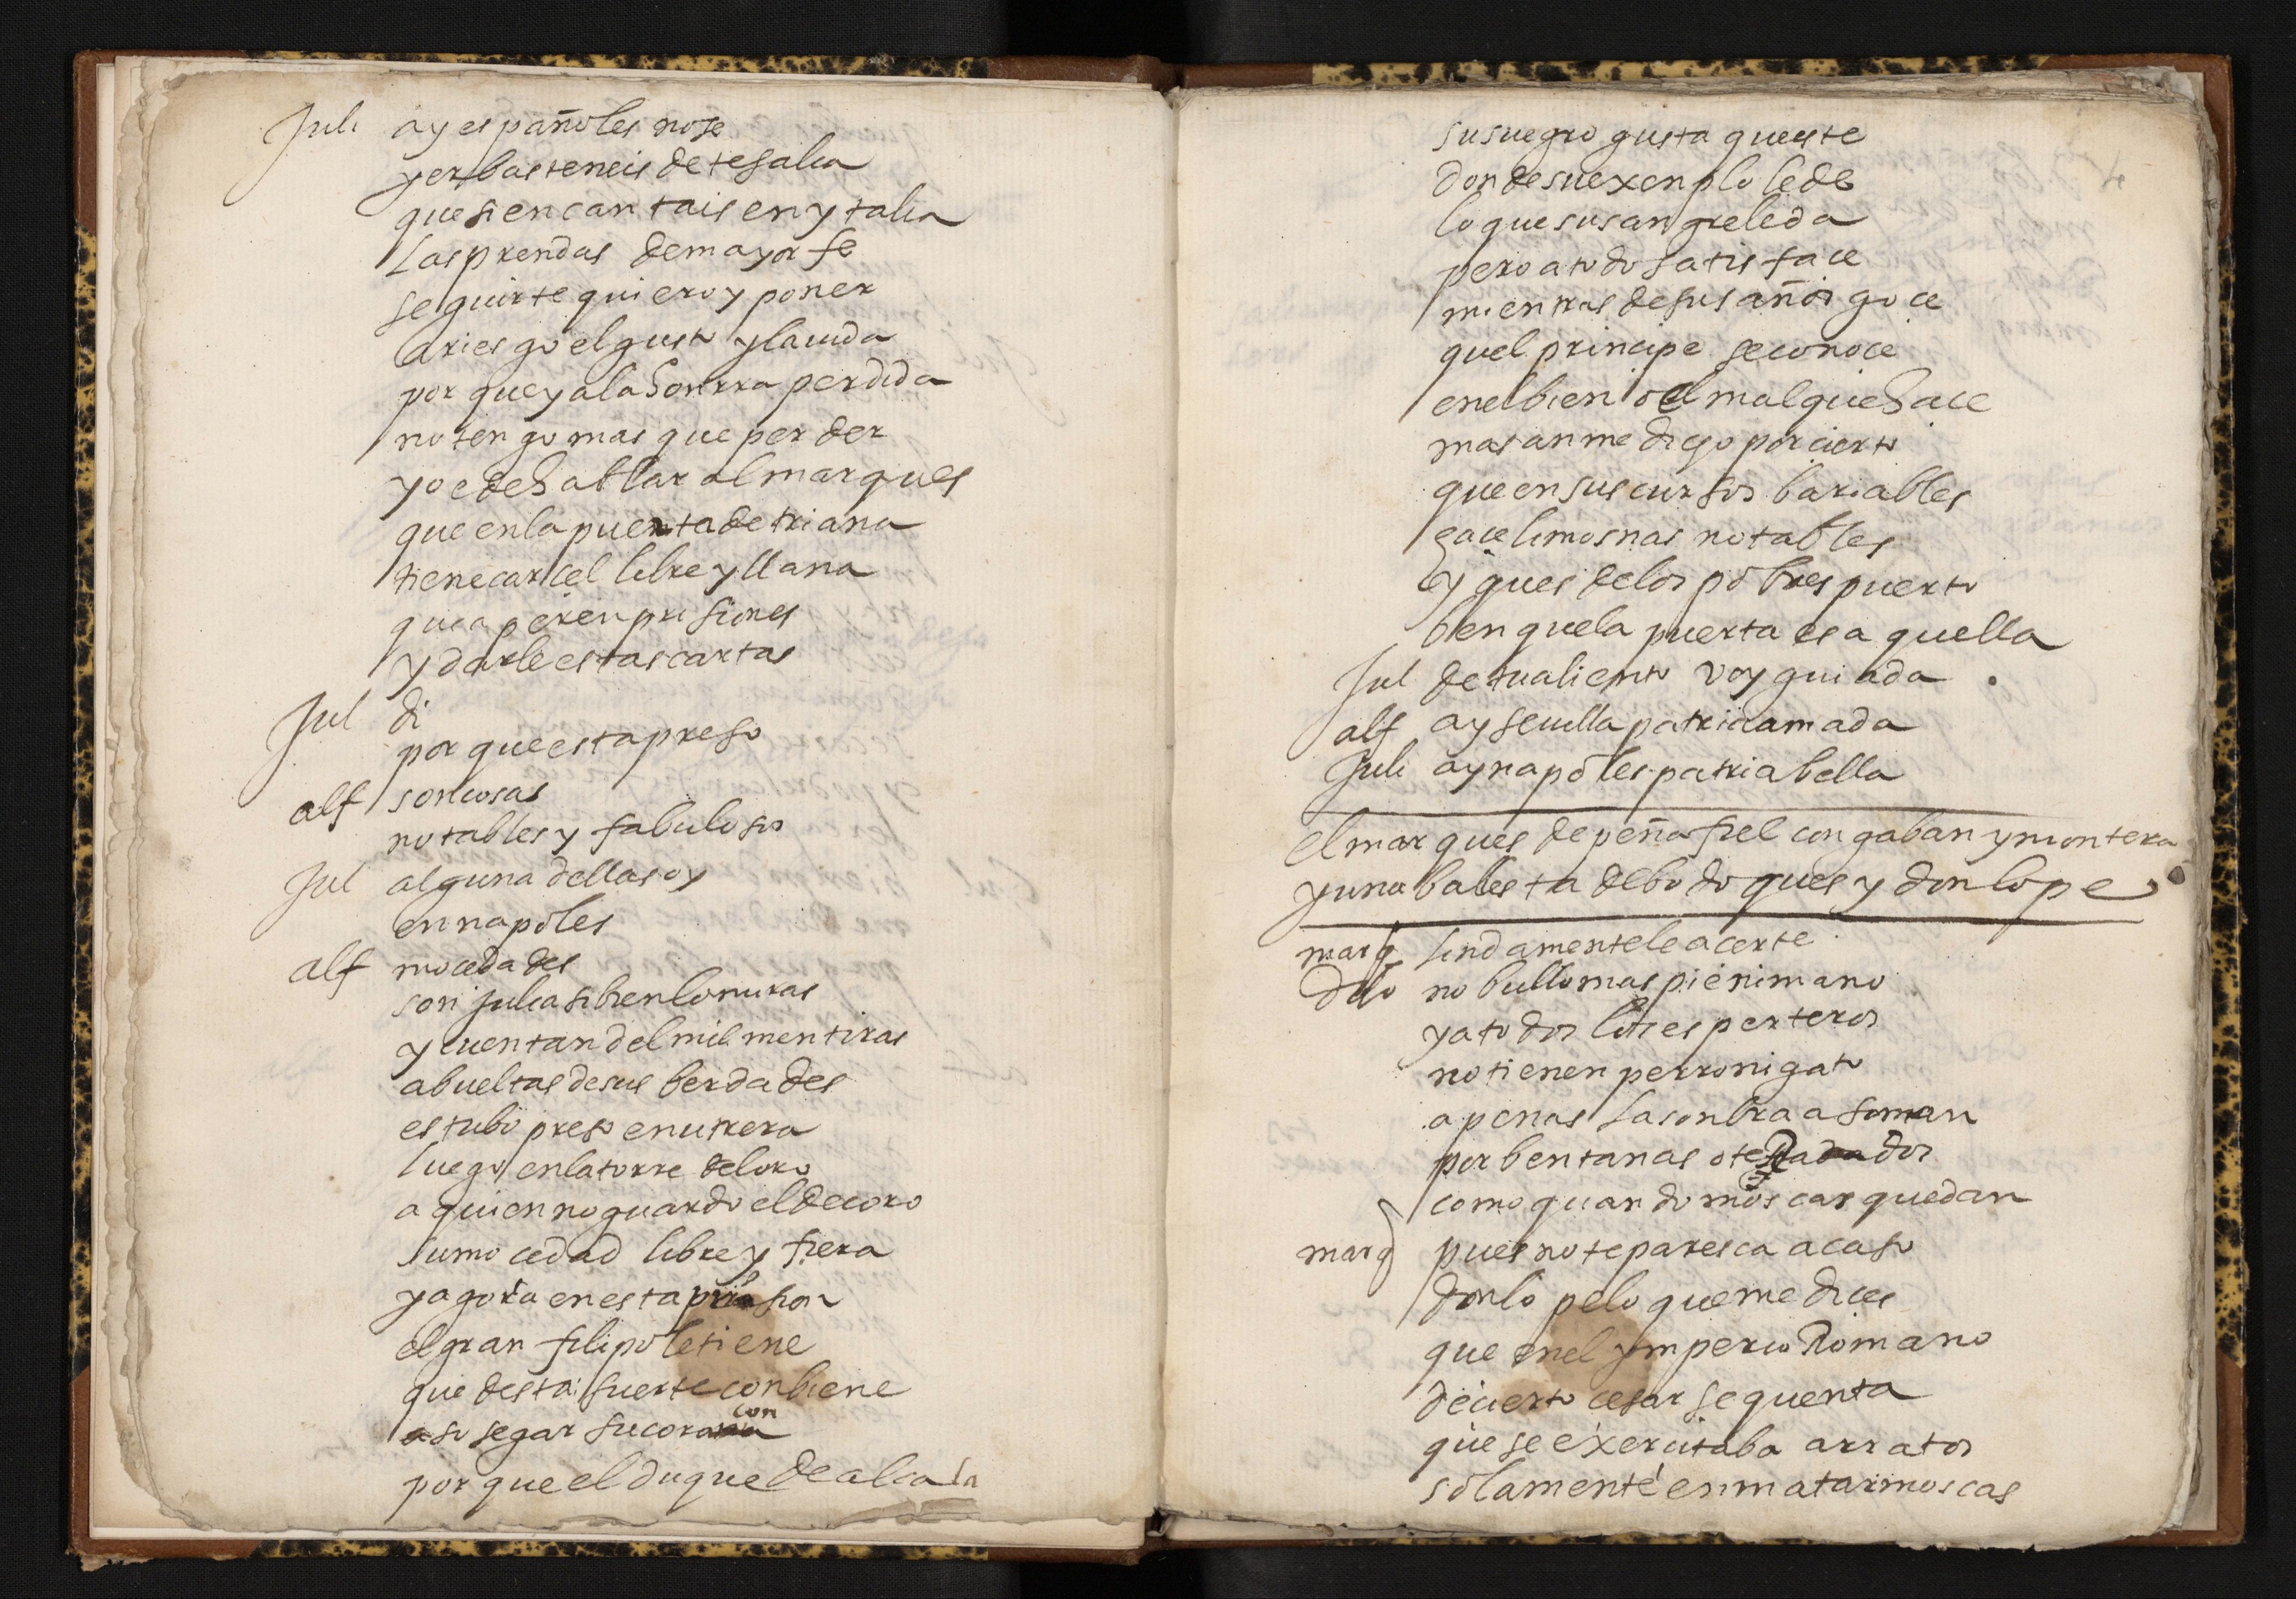 Juli ay españoles nose
yerbas teneis de tesalia
que si encantais en ytalia
las prendas de mayor fe
seguirte quiero y poner
a riesgo el gusto y la uida
por que ya la honrra perdida
no tengo mas que perder
yo e de hablar al marques
que en la puerta de triana
tiene carcel libre y llana
en prisiones
y darle estas cartas
Jul di
por que esta preso
alf son cosas
notables y fabulosos
Jul alguna dellas oy
en napoles
alf mocedades
son julia si bien lo miras
y cuentan del mil mentiras
a bueltas de sus berdades
estubo preso en utrera
luego en la torre del oro
a quien no guardo el decoro
su mocedad libre y fiera
y agora en esta prision
el gran filipo le tiene
que desta suerte conbiene
a sosegar su coracon
por que el duque de alcala
4
su suegro gusta que este
donde su exenplo le de
lo que su sangre le da
pero a todo satisface
mientras de sus años goce
quel principe se conoce
en el bien o el mal que hace
mas an me dicho por cierto
que en sus cursos bariables
hace limosnas notables
y ques de los pobres puerto
ben que la puerta es aquella
Jul de tu aliento voy guiada
alf ay seuilla patria amada
Juli ay napoles patria bella
el marques de peñafiel con gaban y montera
y una balesta de bodoques y don lope
marq lindamente le acerte
dlo no bullo mas pie ni mano
ya todos los esperteros
no tienen perro ni gato
apenas la sonbra asoman
por bentanas o terrados
como quando moscas quedan
marq pues no te paresca acaso
don lope lo que me dices
que en el ymperio Romano
de cierto cesar se quenta
que se exercitaba arratos
solamente en matar moscas